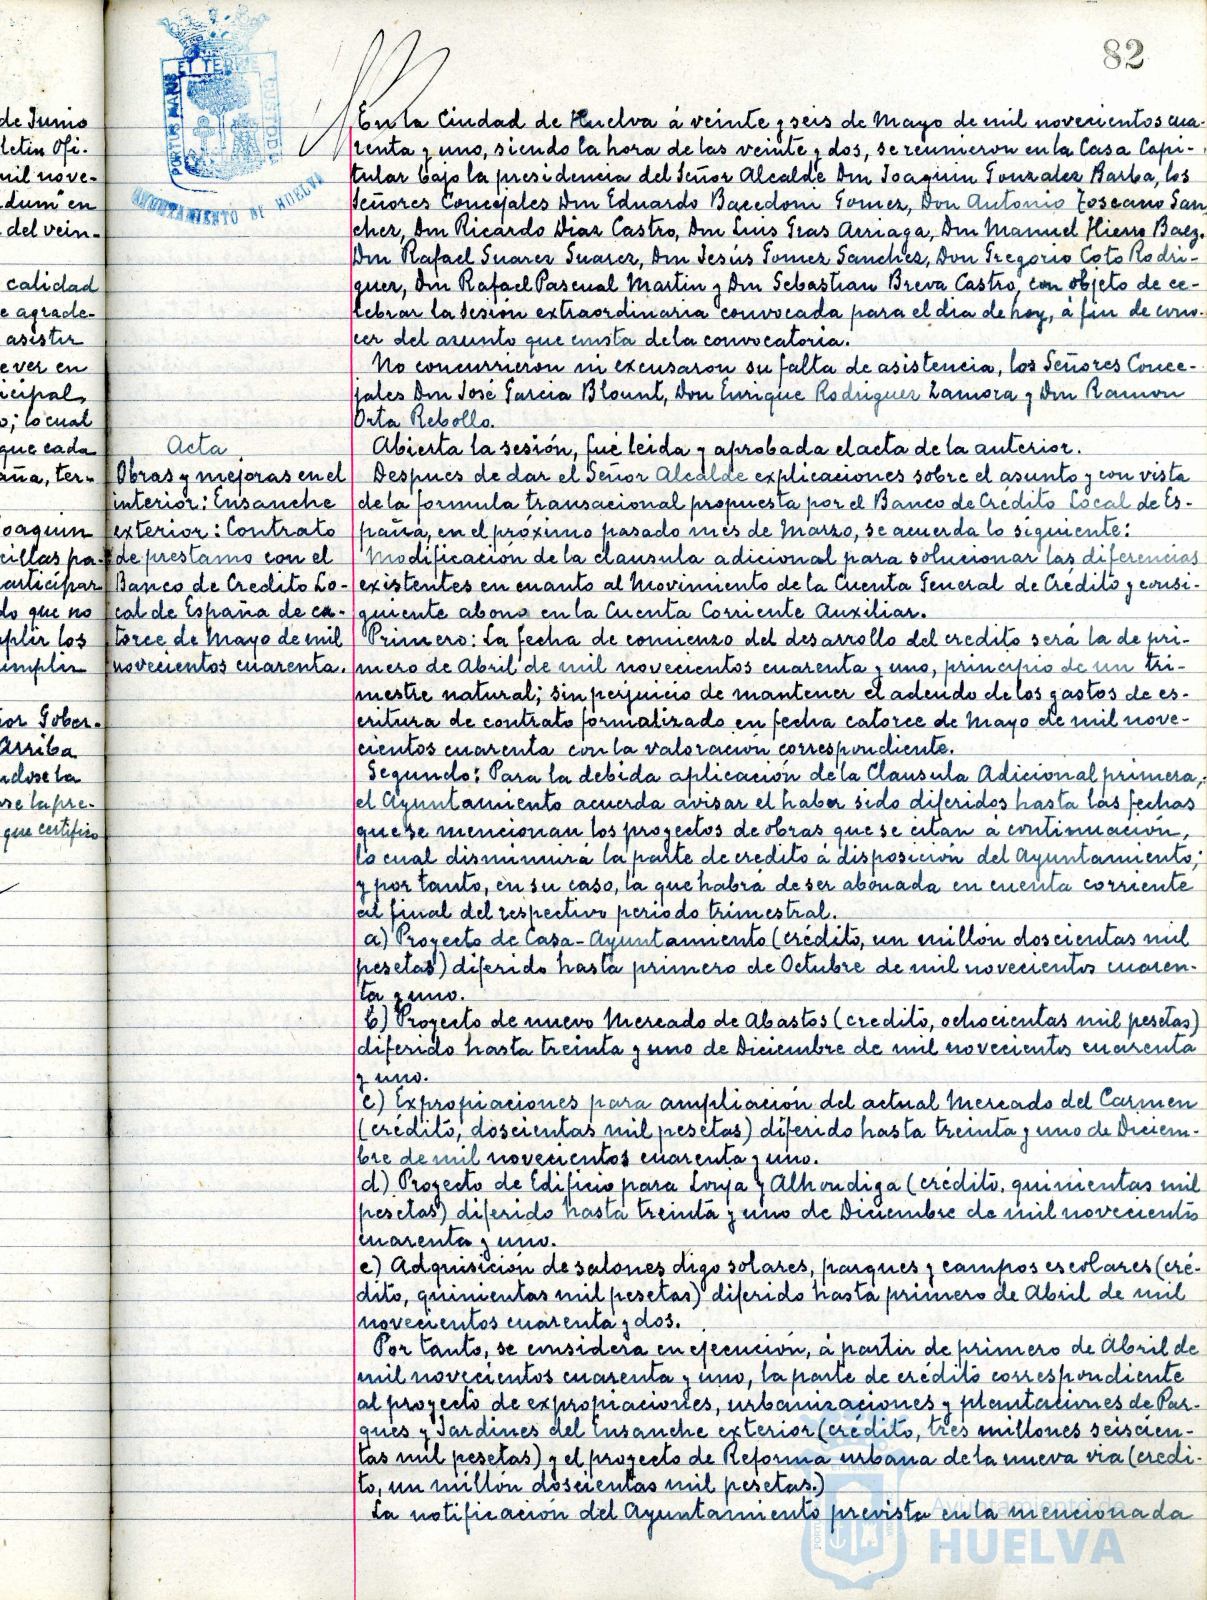 82
PORTUS MARIS ET TERRE CUSTODIA
AYUNTAMIENTO DE HUELVA
de Junio
letin Ofi-
mil nove-
dum" en
del vein-
calidad
e agrade-
asistir
ever en
icipal,
o; lo cual
que cada
aña, ter-
oaquin
cillas pa-
articipar
do que no
plir los
umplir
or Gober-
Arriba
ndose la
se la pre-
que certifico
Acta
Obras y mejoras en el
interior: Ensanche
exterior: Contrato
de prestamo con el
Banco de Credito Lo-
cal de España de ca-
torce de Mayo de mil
novecientos cuarenta.
En la Ciudad de Huelva á veinte y seis de Mayo de mil novecientos cua-
renta y uno, siendo la hora de las veinte y dos, se reunieron en la Casa Capi-
tular bajo la presidencia del Señor Alcalde Don Joaquin Gonzalez Barba, los
Señores Concejales Don Eduardo Bacedoni Gomez, Don Antonio Toscano San-
chez, Don Ricardo Diaz Castro, Don Luis Gras Arriaga, Don Manuel Hierro Baez,
Don Rafael Suarez Suarez, Don Jesús Gomez Sanchez, Don Gregorio Coto Rodri-
guez, Don Rafael Pascual Martin y Don Sebastian Breva Castro, con objeto de ce-
lebrar la sesión extraordinaria convocada para el dia de hoy, á fin de cono-
cer del asunto que consta de la convocatoria.
No concurrieron ni excusaron su falta de asistencia, los Señores Conce-
jales Don José Garcia Blount, Don Enrique Rodriguez Zamora y Don Ramon
Orta Rebollo.
Abierta la sesión, fué leida y aprobada el acta de la anterior.
Despues de dar el Señor Alcalde explicaciones sobre el asunto y con vista
de la formula transacional propuesta por el Banco de Crédito Local de Es-
paña, en el próximo pasado mes de Marzo, se acuerda lo siguiente:
Modificación de la clausula adicional para solucionar las diferencias
existentes en cuanto al Movimiento de la Cuenta General de Crédito y consi-
guiente abono en la Cuenta Corriente Auxiliar.
Primero: La fecha de comienzo del desarrollo del credito será la de pri-
mero de Abril de mil novecientos cuarenta y uno, principio de un tri-
mestre natural; sin perjuicio de mantener el adeudo de los gastos de es-
critura de contrato formalizado en fecha catorce de Mayo de mil nove-
cientos cuarenta con la valoración correspondiente.
Segundo: Para la debida aplicación de la Clausula Adicional primera,
el Ayuntamiento acuerda avisar el haber sido diferidos hasta las fechas
que se mencionan los proyectos de obras que se citan á continuación,
lo cual disminuirá la parte de credito á disposición del Ayuntamiento;
y por tanto, en su caso, la que habrá de ser abonada en cuenta corriente
al final del respectivo periodo trimestral.
a) Proyecto de Casa-Ayuntamiento (crédito, un millón doscientas mil
pesetas) diferido hasta primero de Octubre de mil novecientos cuaren-
ta y uno.
b) Proyecto de nuevo Mercado de Abastos (credito, ochocientas mil pesetas)
diferido hasta treinta y uno de Diciembre de mil novecientos cuarenta
y uno.
c) Expropiaciones para ampliación del actual Mercado del Carmen
(crédito, doscientas mil pesetas) diferido hasta treinta y uno de Diciem-
bre de mil novecientos cuarenta y uno.
d) Proyecto de Edificio para Lonja y Alhondiga (crédito, quinientas mil
pesetas) diferido hasta treinta y uno de Diciembre de mil novecientos
cuarenta y uno.
e) Adquisición de salones digo solares, parques y campos escolares (cré-
dito, quinientas mil pesetas) diferido hasta primero de Abril de mil
novecientos cuarenta y dos.
Por tanto, se considera en ejecución, á partir de primero de Abril de
mil novecientos cuarenta y uno, la parte de crédito correspondiente
al proyecto de expropiaciones, urbanizaciones y plantaciones de Par-
ques y Jardines del Ensanche exterior (crédito, tres millones seiscien-
tas mil pesetas) y el proyecto de Reforma urbana de la nueva via (credi-
to, un millón doscientas mil pesetas.)
La notificación del Ayuntamiento prevista en la mencionada
Ayuntamiento de
HUELVA